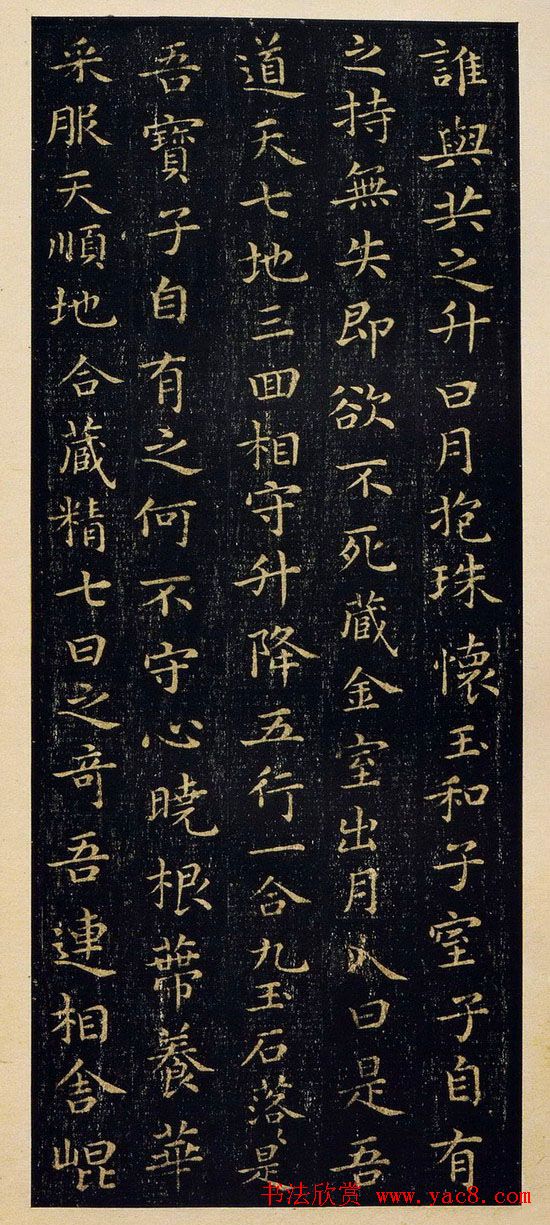 誰與共之升日月抱珠懷玉和子室子自有
之持無失即欲不死藏金室出月入日是吾
道天七地三回相守升降五行一合九玉石落〻是
吾寶子自有之何不守心曉根蔕養華
采服天順地合藏精七日之奇吾連相舍崐
书法欣赏 www.yac8.com